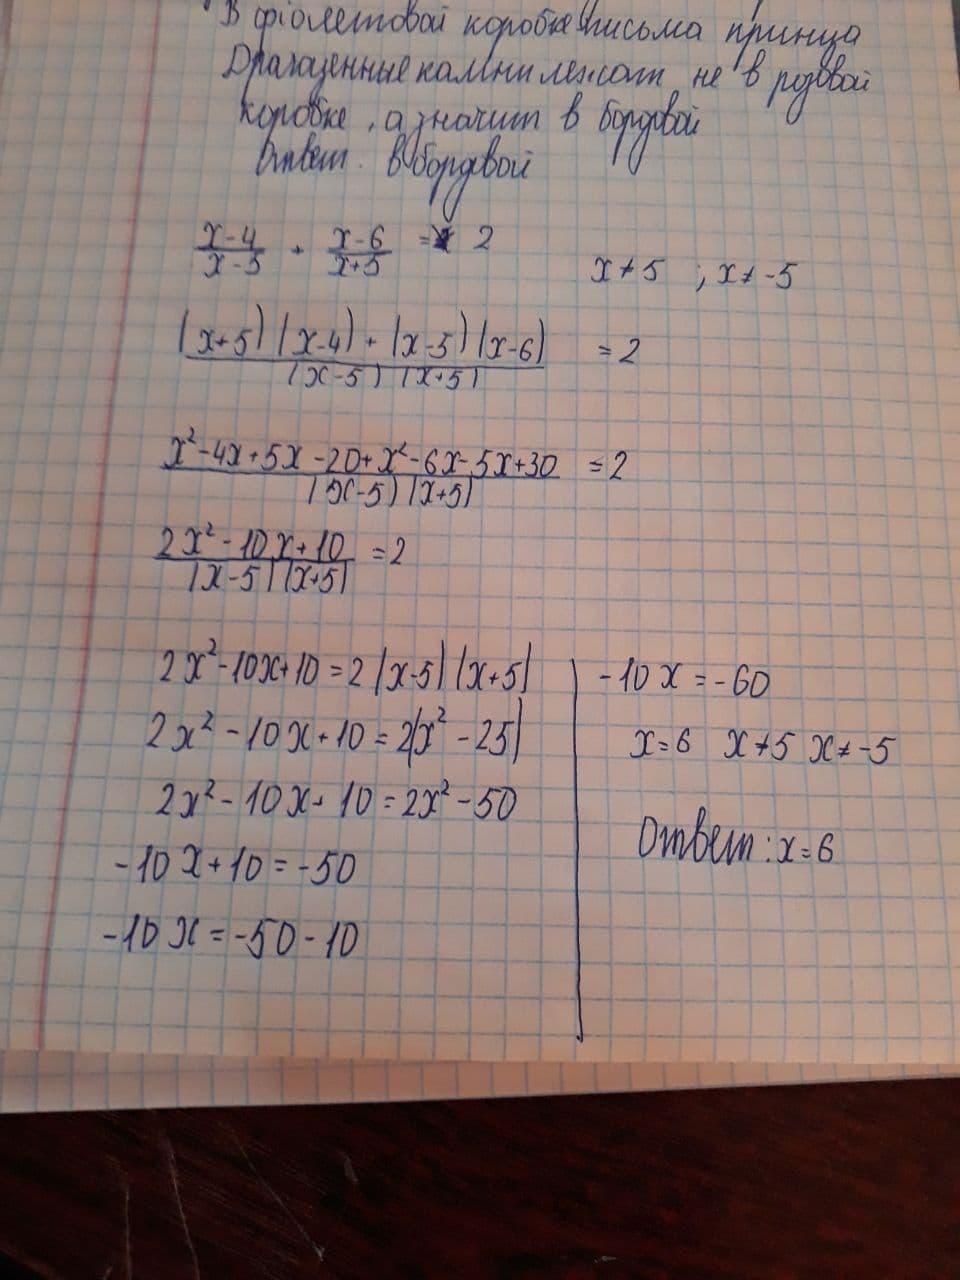 В фіолетовой коробке письма принца
Драгаценные камни лежат не в розовой
коробке, а значит в бордовой
Ответ. в бордовой
(x-4)/(x-5) + (x-6)/(x+5) = 2
x≠5 ; x≠-5
((x+5)(x-4)+(x-5)(x-6))/((x-5)(x+5)) = 2
(x²-4x+5x-20+x²-6x-5x+30)/((x-5)(x+5)) = 2
(2x²-10x+10)/((x-5)(x+5)) = 2
2x²-10x+10=2(x-5)(x+5)
2x²-10x+10=2(x²-25)
2x²-10x+10=2x²-50
-10x+10=-50
-10x=-50-10
-10x=-60
x=6 x≠5 x≠-5
Ответ: x=6